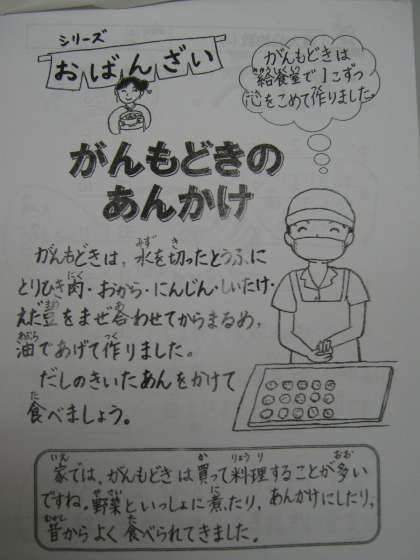 シリーズ
おばんざい
がんもどきは
給食室で1こずつ
心をこめて作りました。
がんもどきの
あんかけ
がんもどきは、水を切ったとうふに
とりひき肉・おから・にんじん・しいたけ・
えだ豆をまぜ合わせてからまるめ、
油であげて作りました。
だしのきいたあんをかけて
食べましょう。
家では、がんもどきは買って料理することが多い
ですね。野菜といっしょに煮たり、あんかけにしたり、
昔からよく食べられてきました。